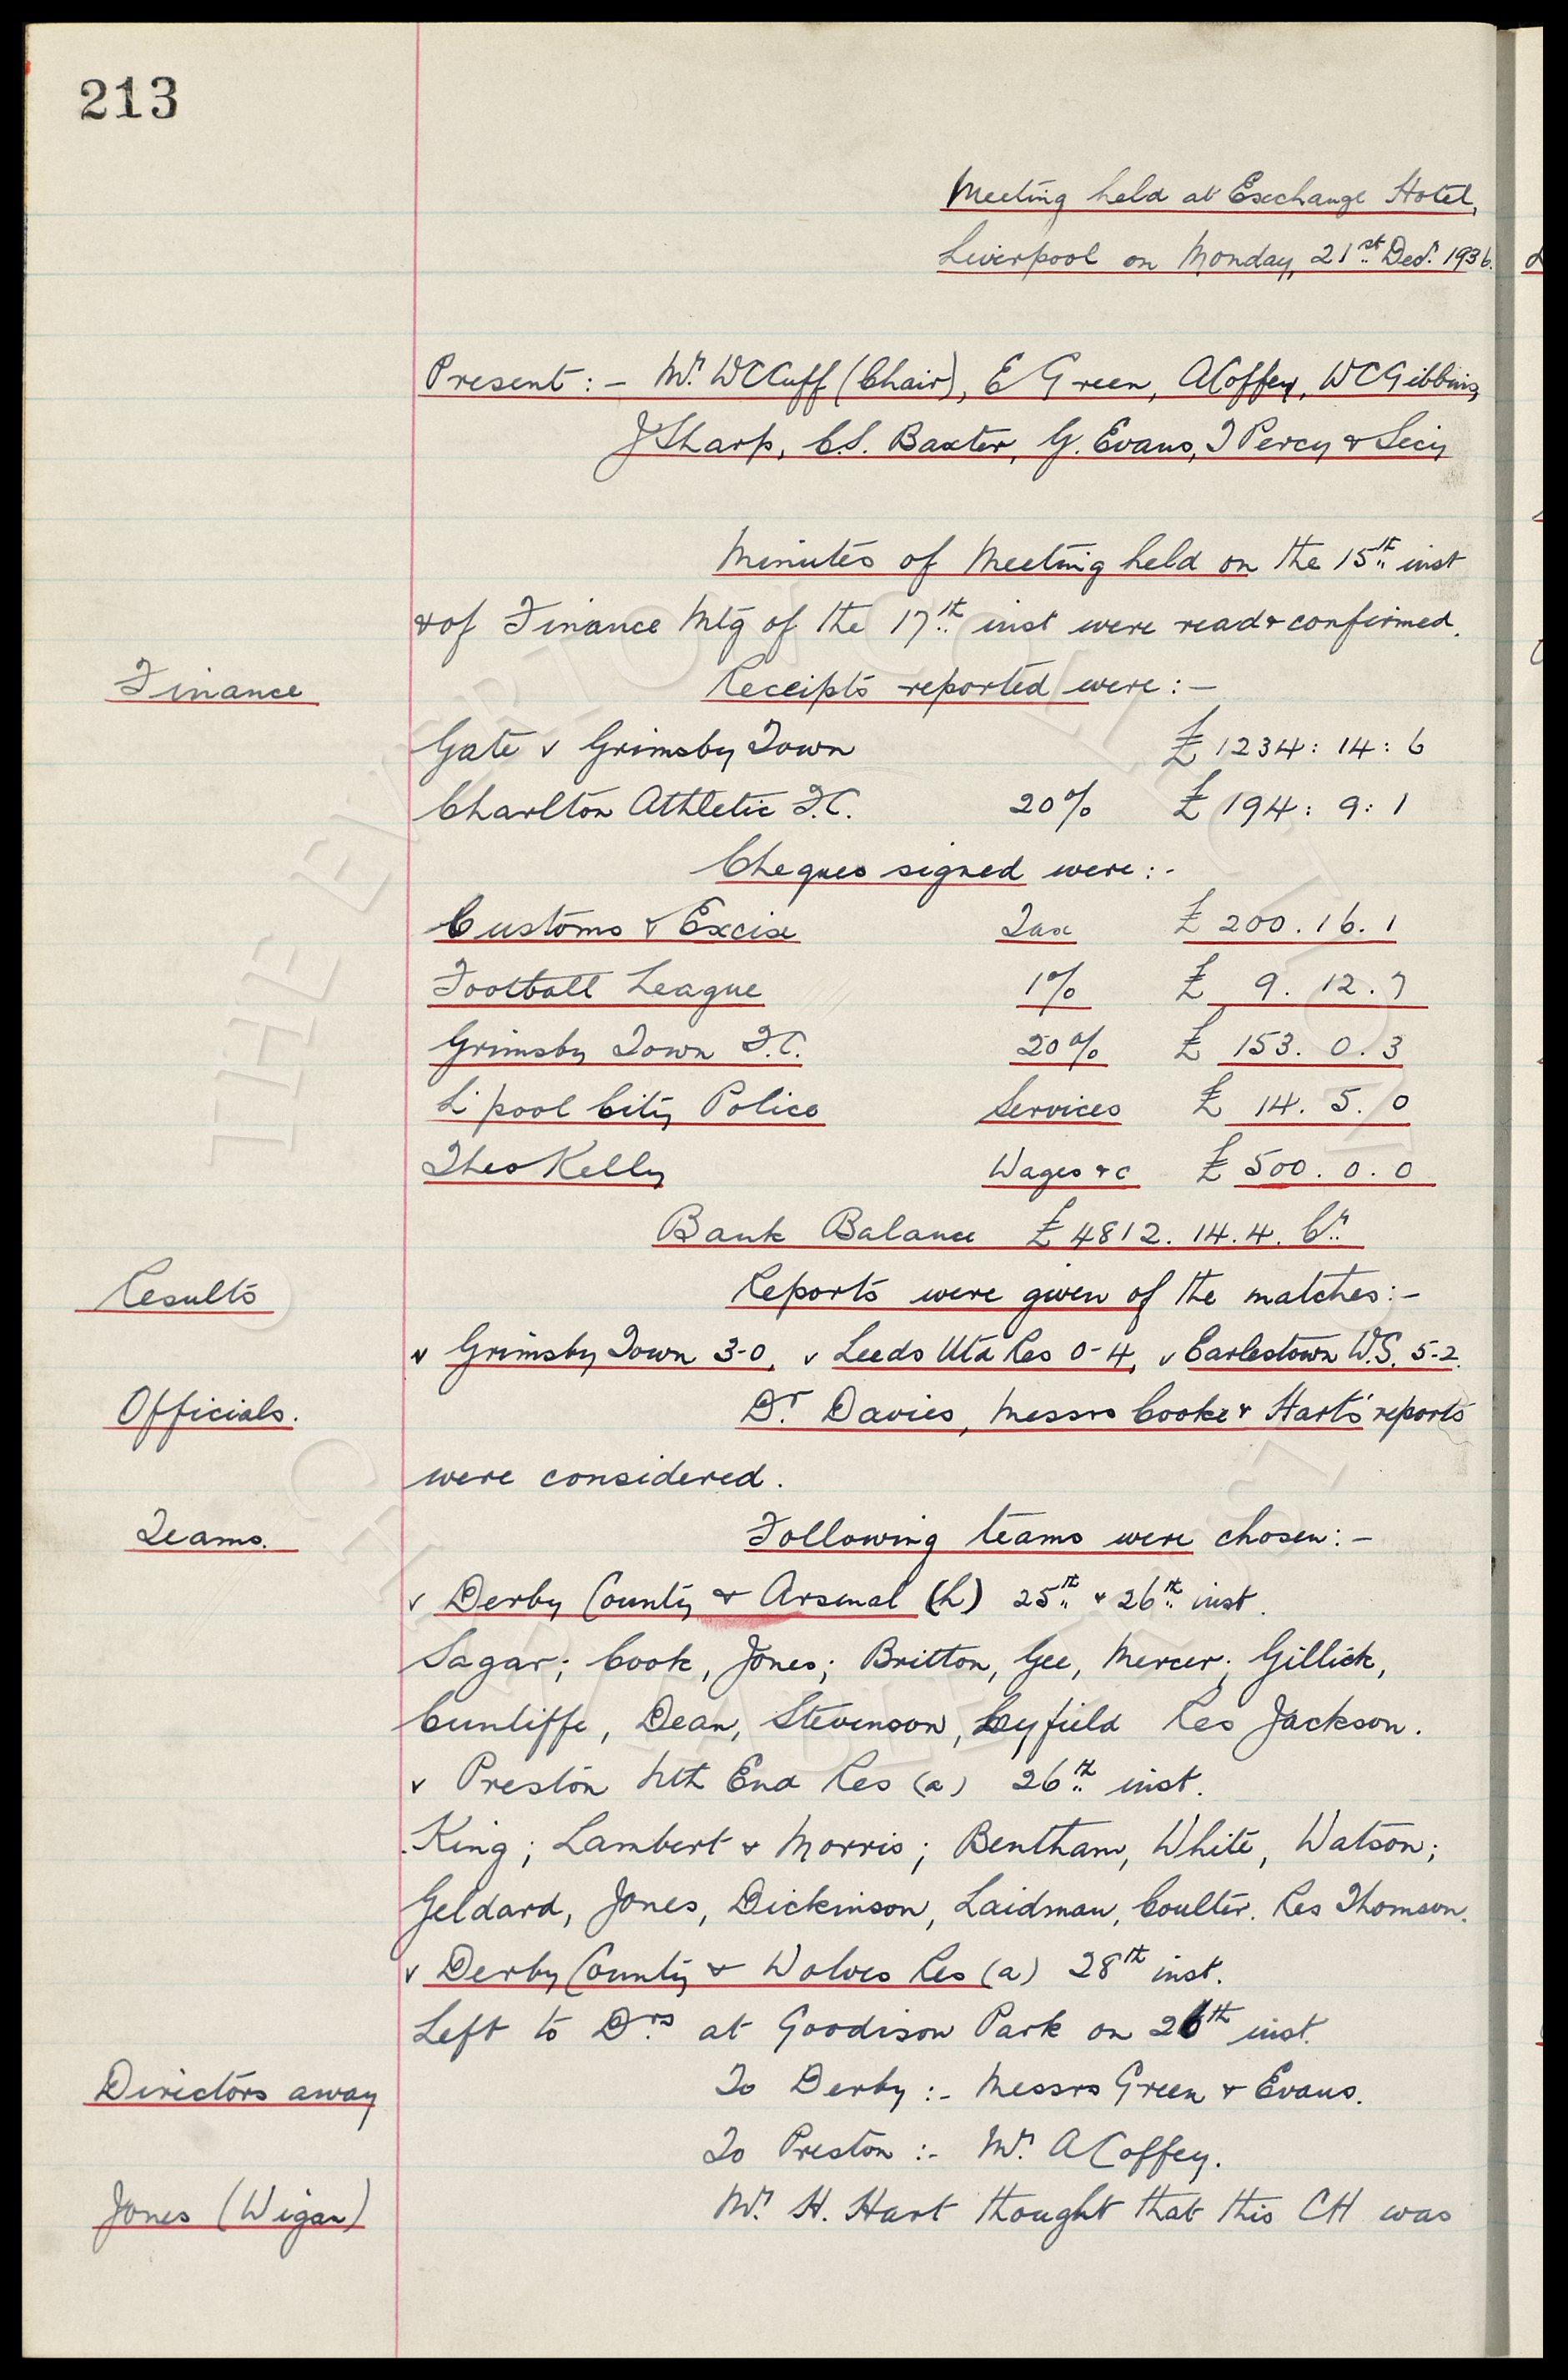 213
Meeting held at Exchange Hotel,
Liverpool on Monday, 21st Decr. 1936.
Present: - Mr. WCCuff (Chair), E Green, ACoffey, WCGibbins
JSharp, C.S. Baxter, G. Evans, T Percy & Secy
Minutes of Meeting held on the 15th inst
& of Finance Mtg of the 17th inst were read & confirmed.
Finance
Receipts reported were: -
Gate v Grimsby Town £ 1234: 14: 6
Charlton Athletic F.C. 20% £ 194: 9: 1
Cheques signed were: -
Customs & Excise Tax £ 200. 16. 1
Football League 1% £ 9. 12. 7
Grimsby Town F.C. 20% £ 153. 0. 3
L'pool City Police Services £ 14. 5. 0
Theo Kelly Wages &c £ 500. 0. 0
Bank Balance £ 4812. 14. 4. Cr.
Results
Reports were given of the matches: -
v Grimsby Town 3-0, v Leeds Utd Res 0-4, v Earlestown W.S. 5-2.
Officials.
Dr. Davies, Messrs Cooke & Hart's reports
were considered.
Teams.
Following teams were chosen: -
v Derby County & Arsenal (h) 25th & 26th inst.
Sagar; Cook, Jones; Britton, Gee, Mercer; Gillick,
Cunliffe, Dean, Stevenson, Leyfield Res Jackson.
v Preston Nth End Res (a) 26th inst.
King; Lambert & Morris; Bentham, White, Watson;
Geldard, Jones, Dickinson, Laidman, Coulter. Res Thomson.
v Derby County & Wolves Res (a) 28th inst.
Left to Drs. at Goodison Park on 26th inst.
Directors away
To Derby: - Messrs Green & Evans.
To Preston: - Mr. ACoffey.
Jones (Wigan)
Mr. H. Hart thought that this CH was